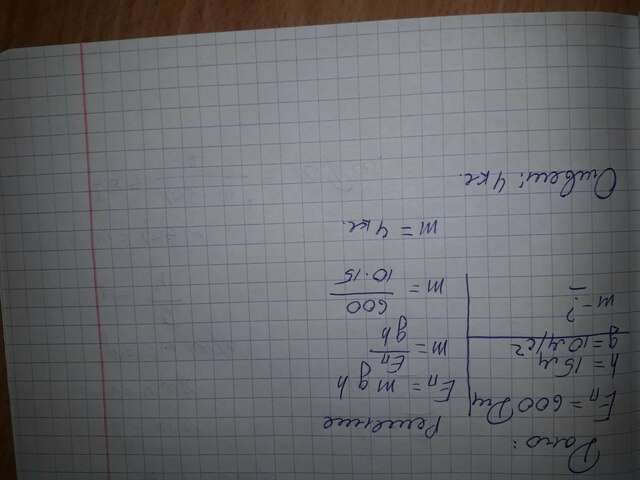 Дано:
Eп = 600 Дж
h = 15 м
g = 10 м/с²
m - ?
Решение
Eп = m g h
m = Eп / gh
m = 600 / 10 · 15
m = 4 кг.
Ответ: 4 кг.